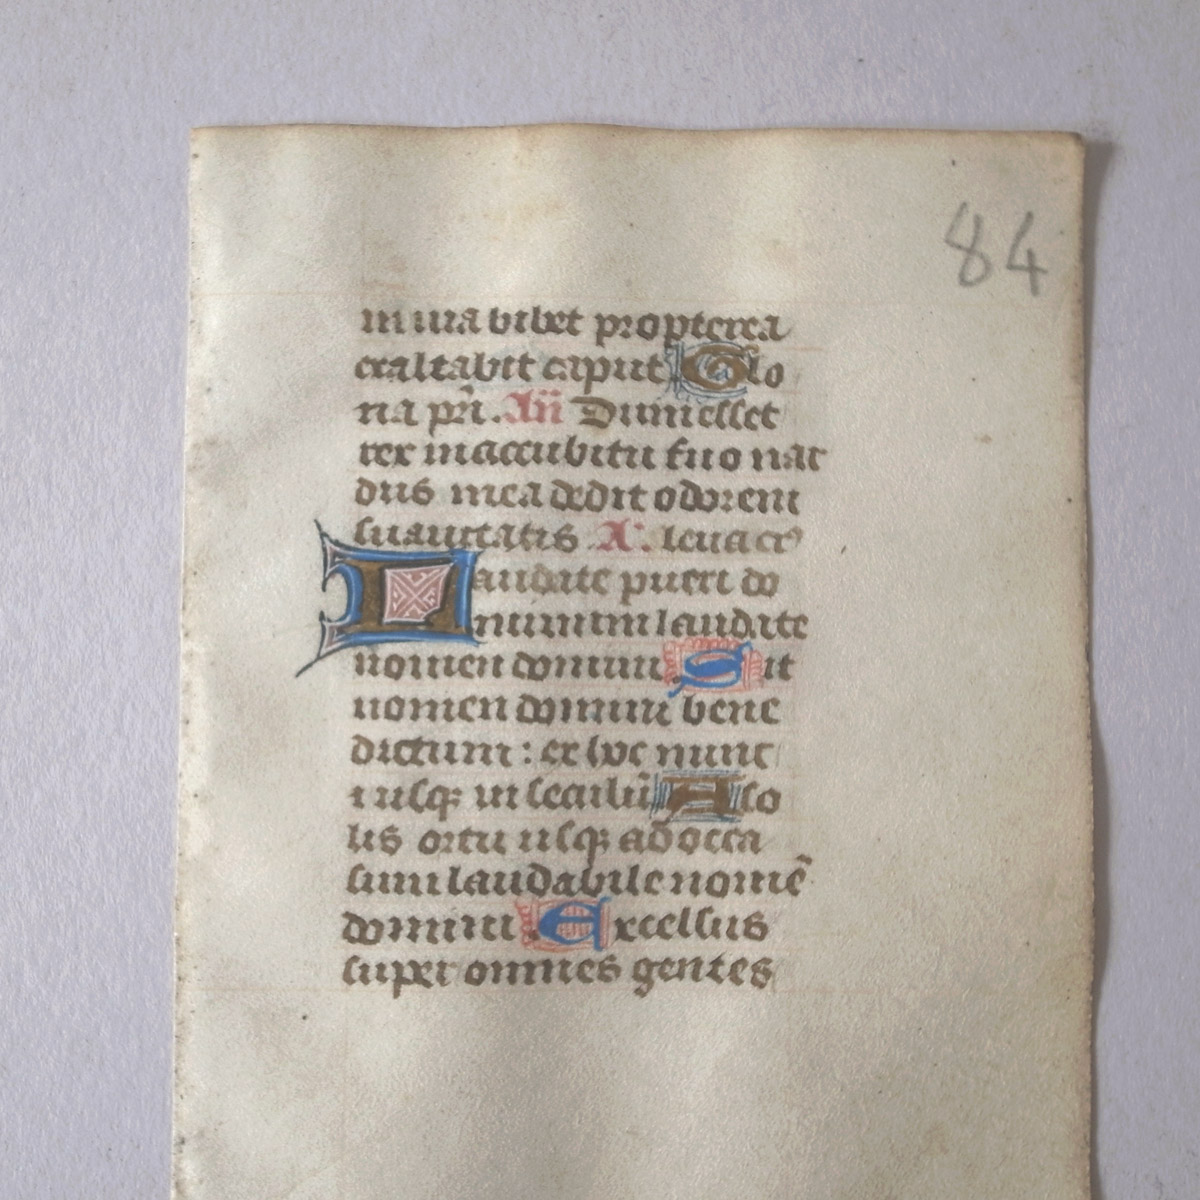 84
in via bibet propterea
exaltabit caput Glo
ria pr̄i. Añ Dum esset
rex in accubitu suo nar
dus mea dedit odorem
suauitatis A. leua eiꝰ
Laudate pueri do
minum laudate
nomen domini Sit
nomen domini bene
dictum : ex hoc nunc
i usqꝫ in seculū A so
lis ortu usqꝫ ad occa
sum laudabile nomē
domini Excelsus
super omnes gentes